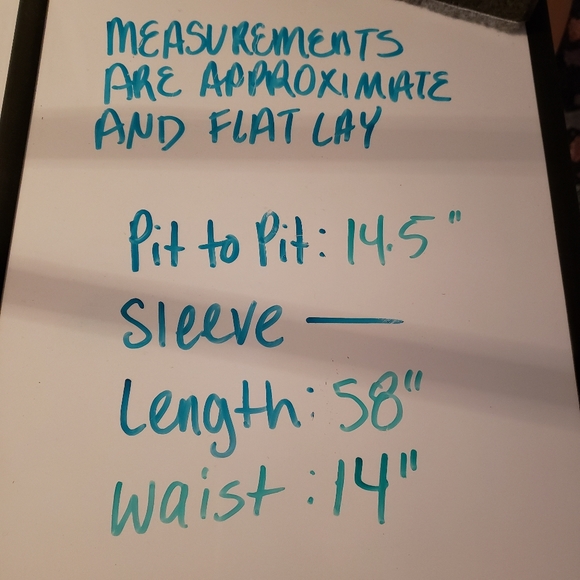 MEASUREMENTS
ARE APPROXIMATE
AND FLAT LAY
Pit to Pit: 14.5"
Sleeve —
Length: 58"
Waist: 14"